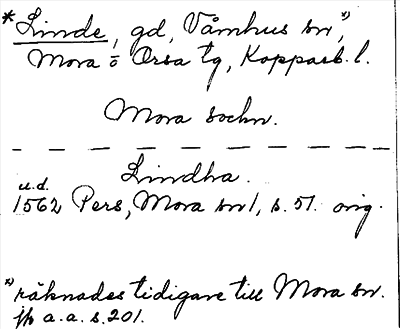 * Linde, gd, Våmhus sn,*)
Mora o Orsa tg, Kopparb. l.
Mora sochn.
Lindha.
u.d.
1562 Pers, Mora sn 1, s. 51. orig.
*) räknades tidigare till Mora sn.
jfr a.a. s. 201.